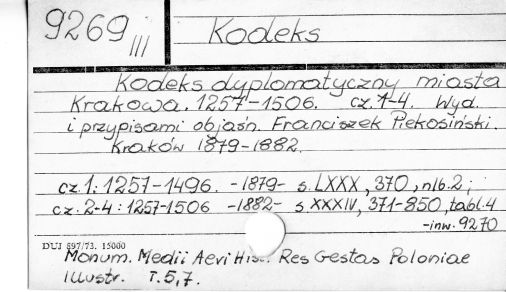 9269 III
Kodeks
Kodeks dyplomatyczny miasta
Krakowa. 1257-1506. cz. 1-4. Wyd.
i przypisami objaśn. Franciszek Piekosiński.
Kraków 1879-1882.
cz. 1: 1257-1496. -1879- s. LXXX, 370, nlb. 2;
cz. 2-4: 1257-1506 -1882- s. XXXIV, 371-850, tabl. 4
-inw. 9270
DUJ 897/73. 15000
Monum. Medii Aevi Hist. Res Gestas Poloniae
Illustr. T. 5, 7.